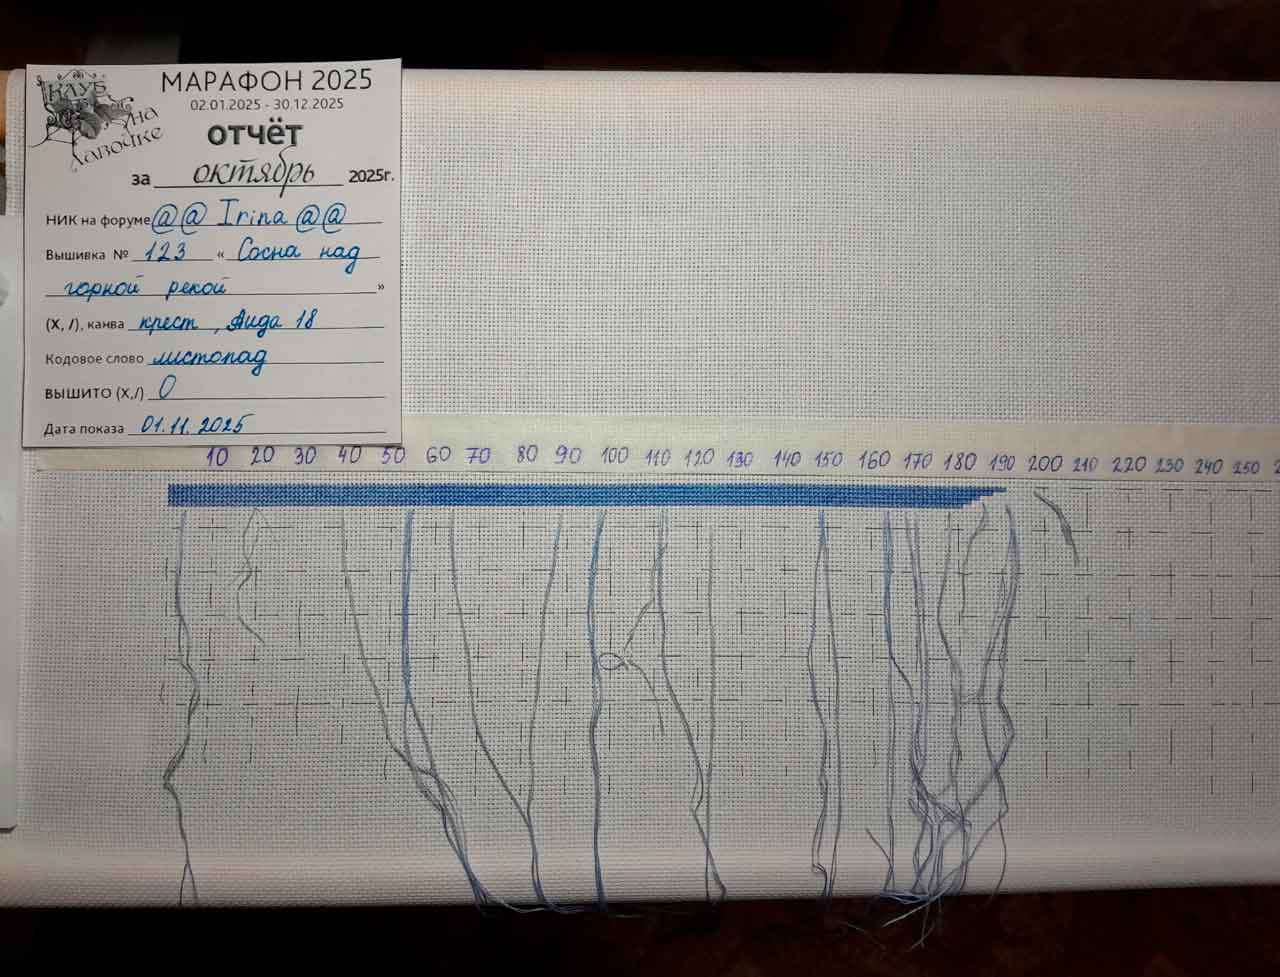 КЛУБ
на
лавочке
МАРАФОН 2025
02.01.2025 - 30.12.2025
отчёт
за октябрь 2025г.
НИК на форуме @@ Irina @@
Вышивка № 123 « Сосна над
горной рекой »
(X, /), канва крест, Аида 18
Кодовое слово листопад
ВЫШИТО (X,/) 0
Дата показа 01.11.2025
10 20 30 40 50 60 70 80 90 100 110 120 130 140 150 160 170 180 190 200 210 220 230 240 250